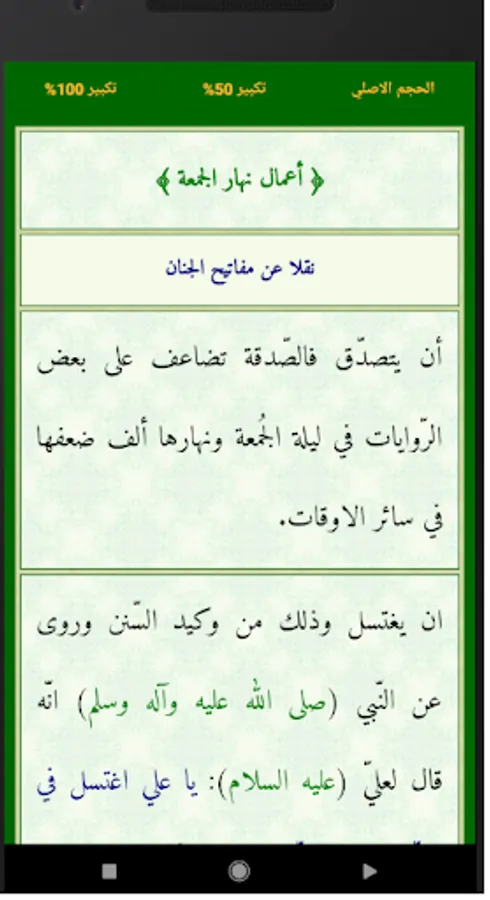 الحجم الاصلي تكبير 50% تكبير 100%
﴿ أعمال نهار الجمعة ﴾
نقلا عن مفاتيح الجنان
أن يتصدّق فالصّدقة تضاعف على بعض
الرّوايات في ليلة الجُمعة ونهارها ألف ضعفها
في سائر الاوقات.
ان يغتسل وذلك من وكيد السّنن وروى
عن النّبي (صلى الله عليه وآله وسلم) انّه
قال لعليّ (عليه السلام): يا علي اغتسل في